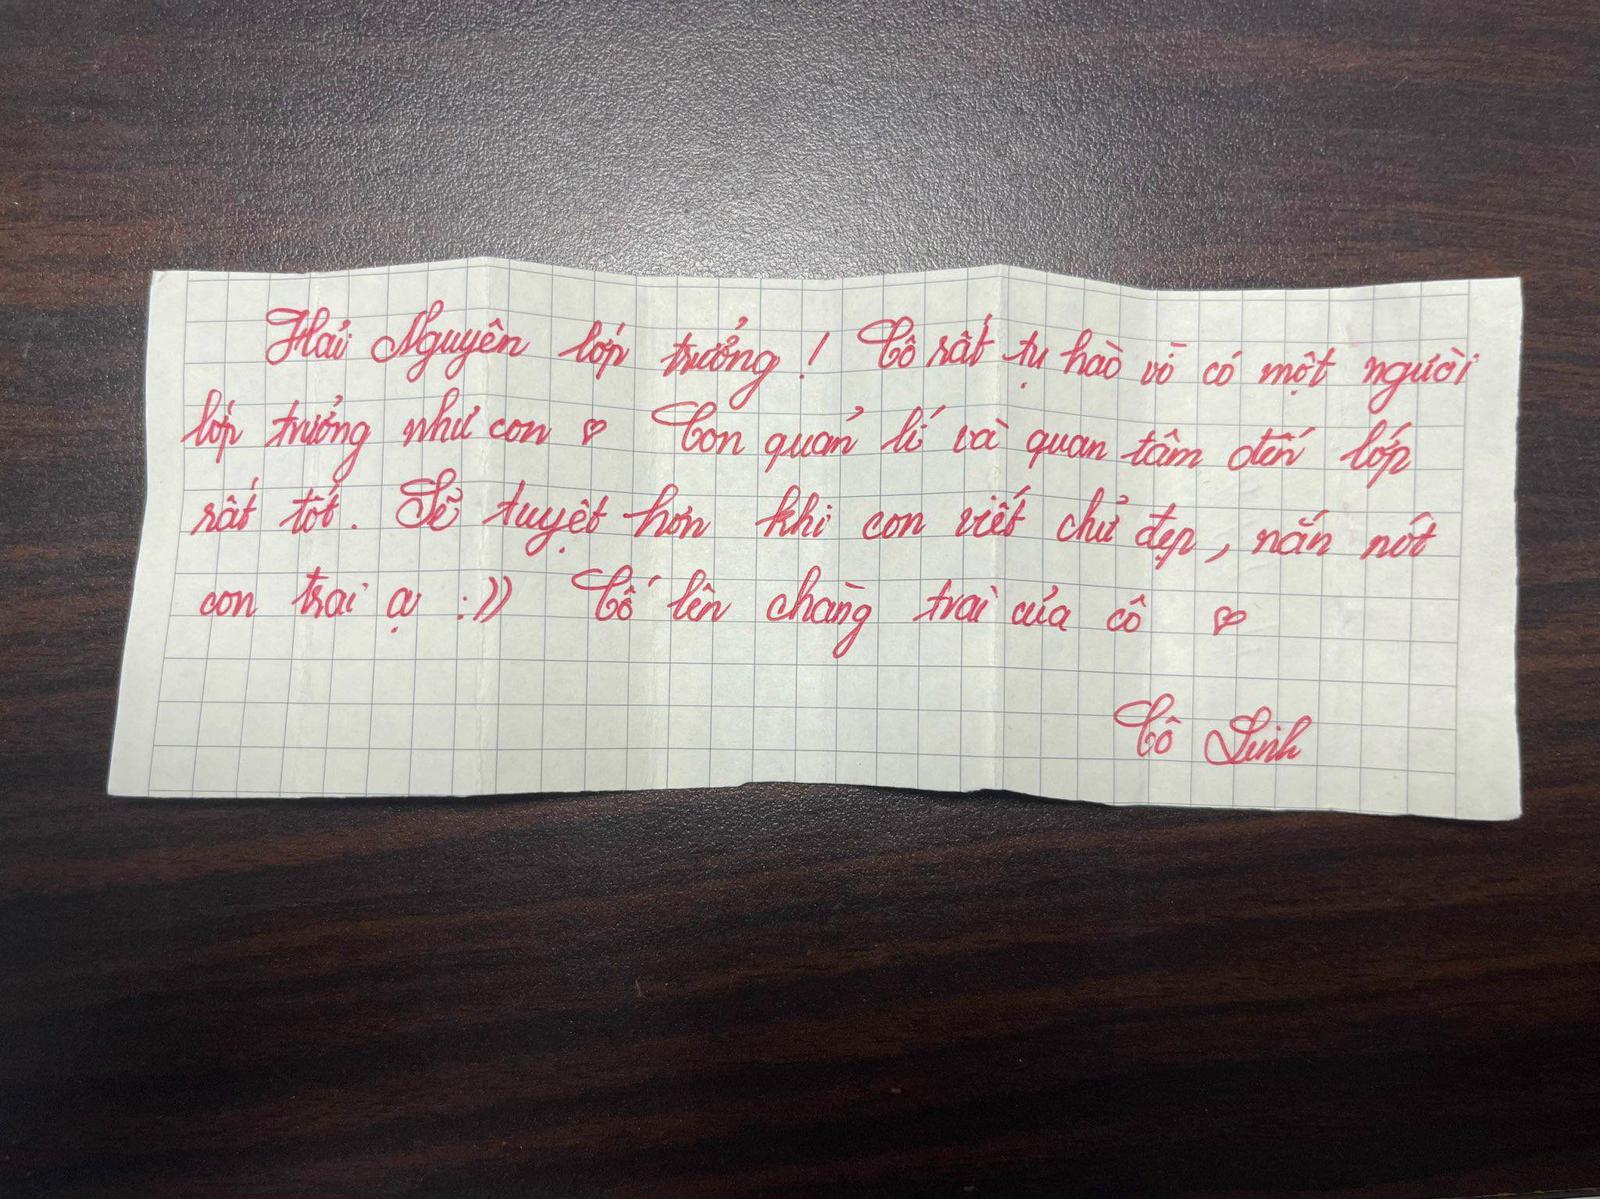 Hải Nguyên lớp trưởng! Cô rất tự hào vì có một người
lớp trưởng như con ♡ Con quản lí và quan tâm đến lớp
rất tốt. Sẽ tuyệt hơn khi con viết chữ đẹp, nắn nót
con trai ạ :)) Cố lên chàng trai của cô ♡
Cô Linh